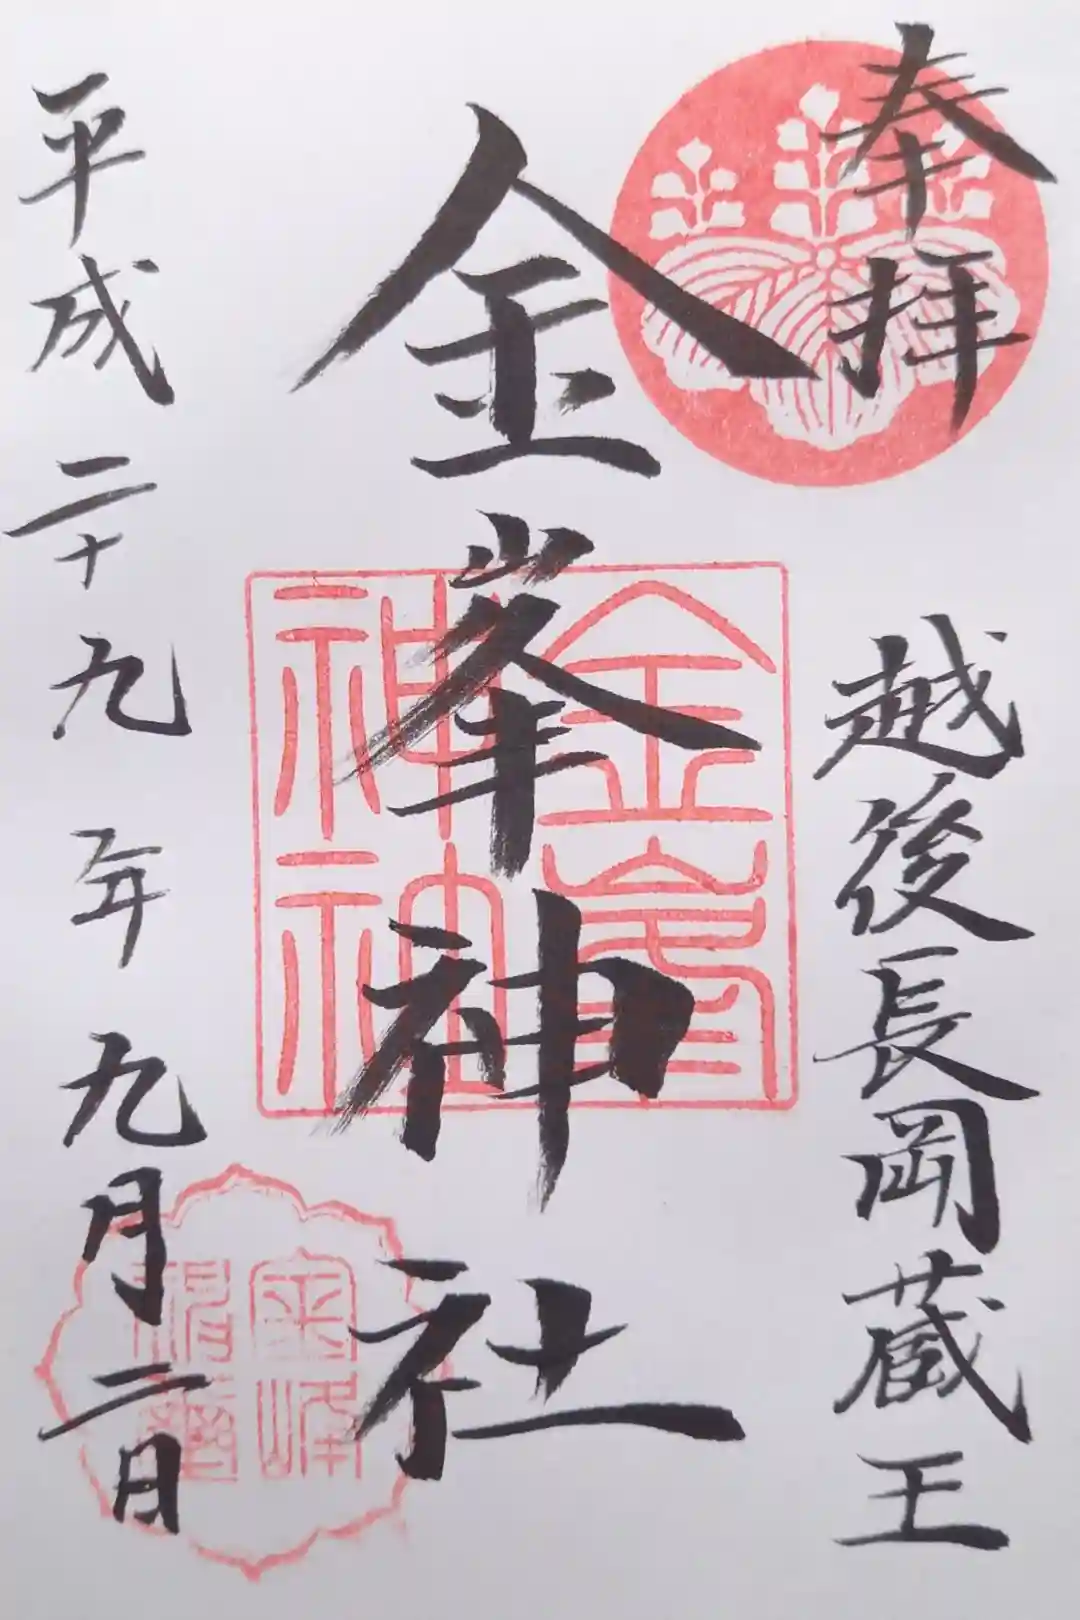 奉拝
越後長岡蔵王
金峯神社
平成二十九年九月二日
金峯
神社